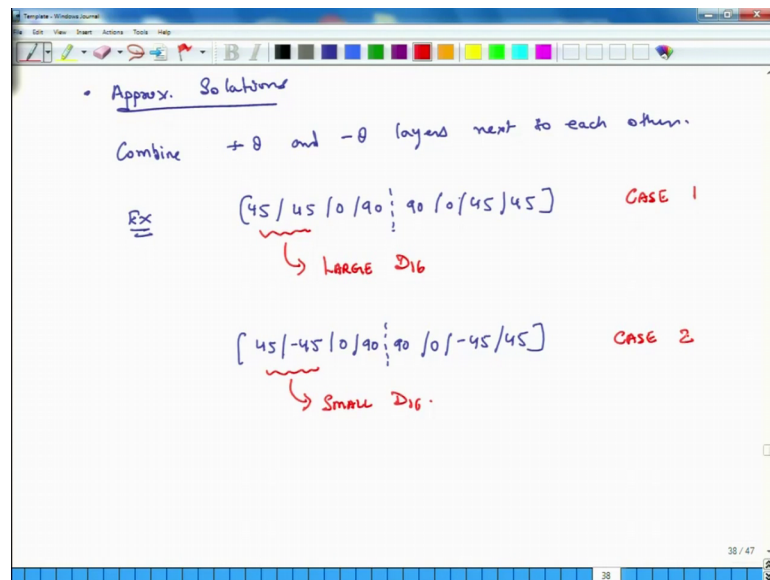 Template - Windows Journal
File Edit View Insert Actions Tools Help
• Approx. Solutions
Combine +θ and -θ layers next to each other.
Ex [45/45/0/90¦90/0/45/45] CASE 1
↳ LARGE D16
[45/-45/0/90¦90/0/-45/45] CASE 2
↳ SMALL D16.
38 / 47
38